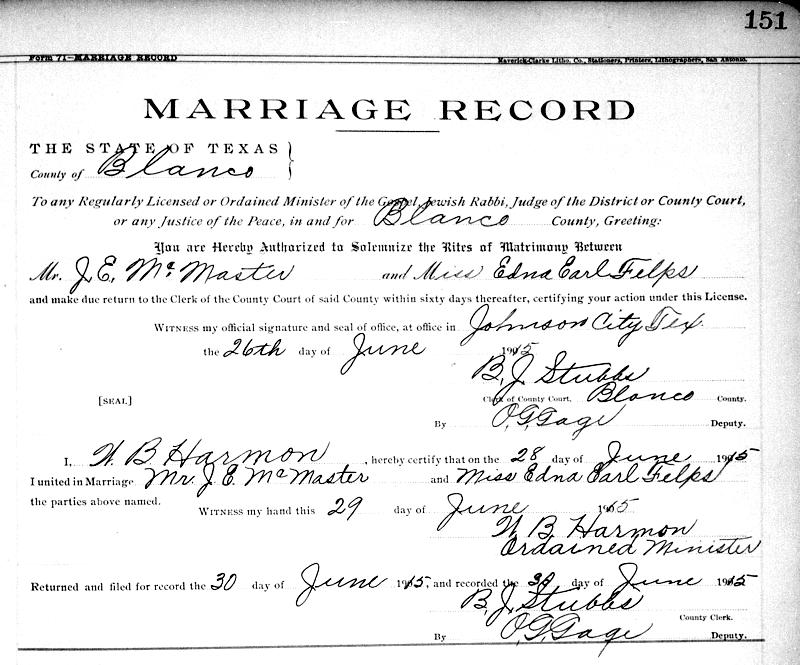 151
Form 71—MARRIAGE RECORD Maverick-Clarke Litho. Co., Stationers, Printers, Lithographers, San Antonio.
MARRIAGE RECORD
THE STATE OF TEXAS
County of Blanco
To any Regularly Licensed or Ordained Minister of the Gospel, Jewish Rabbi, Judge of the District or County Court,
or any Justice of the Peace, in and for Blanco County, Greeting:
You are Hereby Authorized to Solemnize the Rites of Matrimony Between
Mr. J. E. McMaster and Miss Edna Earl Felps
and make due return to the Clerk of the County Court of said County within sixty days thereafter, certifying your action under this License.
WITNESS my official signature and seal of office, at office in Johnson City Tex.
the 26th day of June 1915
B. J. Stubbs
[SEAL] Clerk of County Court, Blanco County.
By O. G. Gage Deputy.
I, W. B. Harmon, hereby certify that on the 28 day of June 1915
I united in Marriage Mr. J. E. McMaster and Miss Edna Earl Felps
the parties above named. WITNESS my hand this 29 day of June 1915
W. B. Harmon
Ordained Minister
Returned and filed for record the 30 day of June 1915, and recorded the 30 day of June 1915
B. J. Stubbs
County Clerk.
By O. G. Gage Deputy.